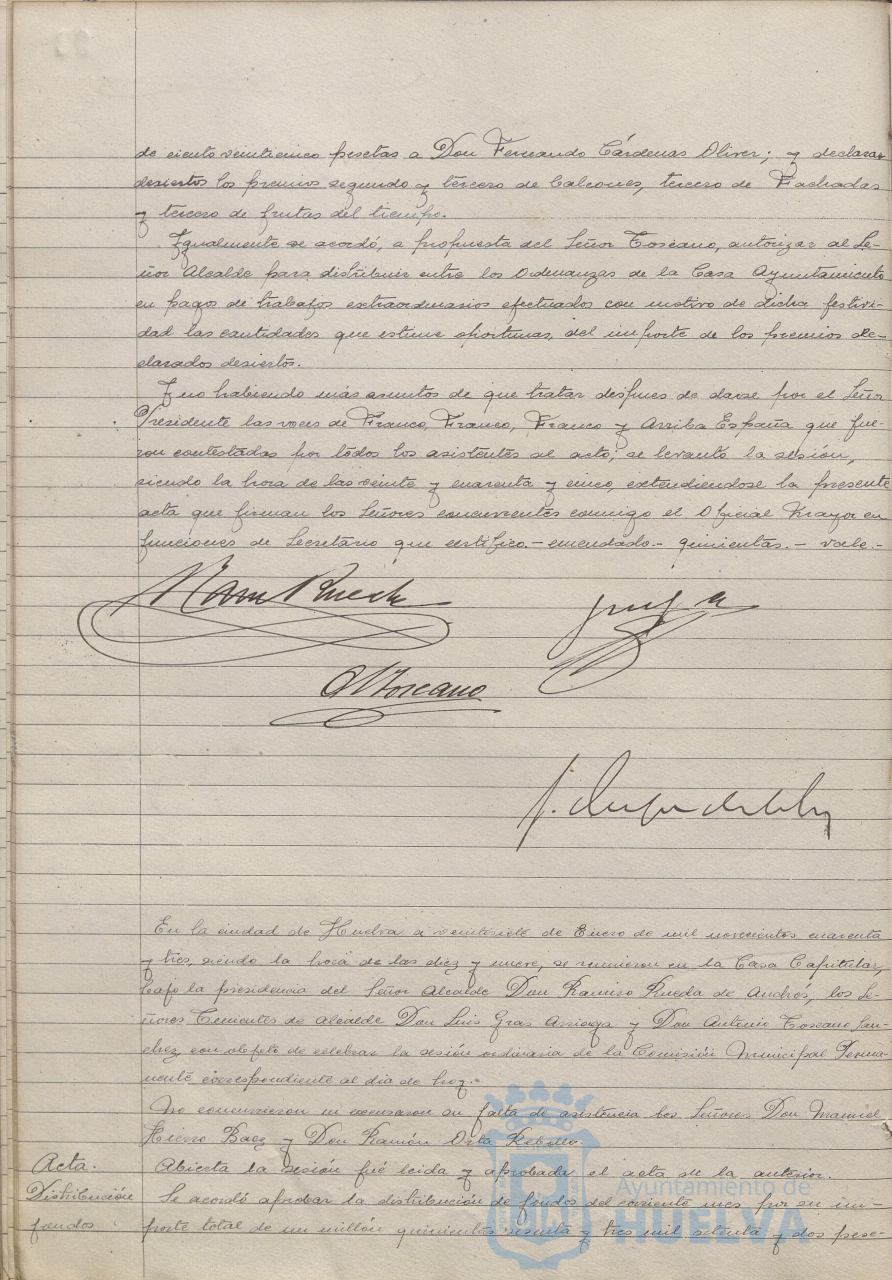 de ciento veinticinco pesetas a Don Fernando Cárdenas Oliver; y declarar
desiertos los premios segundo y tercero de balcones, tercero de Fachadas
y tercero de frutas del tiempo.
Igualmente se acordó, a propuesta del Señor Toscano, autorizar al Se-
ñor Alcalde para distribuir entre los Ordenanzas de la Casa Ayuntamiento
en pagos de trabajos extraordinarios efectuados con motivo de dicha festivi-
dad las cantidades que estime oportunas, del importe de los premios de-
clarados desiertos.
Y no habiendo más asuntos de que tratar despues de darse por el Señor
Presidente las voces de Franco, Franco, Franco y Arriba España que fue-
ron contestadas por todos los asistentes al acto; se levantó la sesión,
siendo la hora de las veinte y cuarenta y cinco, extendiendose la presente
acta que firman los Señores concurrentes conmigo el Oficial Mayor en
funciones de Secretario que certifico.- enmendado.- quinientas.- vale.-
Toscano
En la ciudad de Huelva a veintisiete de Enero de mil novecientos cuarenta
y tres, siendo la hora de las diez y nueve, se reunieron en la Casa Capitular,
bajo la presidencia del Señor Alcalde Don Ramiro Rueda de Andrés, los Se-
ñores Tenientes de Alcalde Don Luis Gras Arriaga y Don Antonio Toscano San-
chez, con objeto de celebrar la sesión ordinaria de la Comisión Municipal Perma-
nente correspondiente al dia de hoy.-
No concurrieron ni excusaron su falta de asistencia los Señores Don Manuel
Hierro Baez y Don Ramón Orta Rebollo
Acta. Abierta la sesión fué leida y aprobada el acta de la anterior.
Distribución Se acordó aprobar la distribución de fondos del corriente mes por su im-
fondos porte total de un millón quinientas y tres mil setenta y dos pese-
Ayuntamiento de
HUELVA